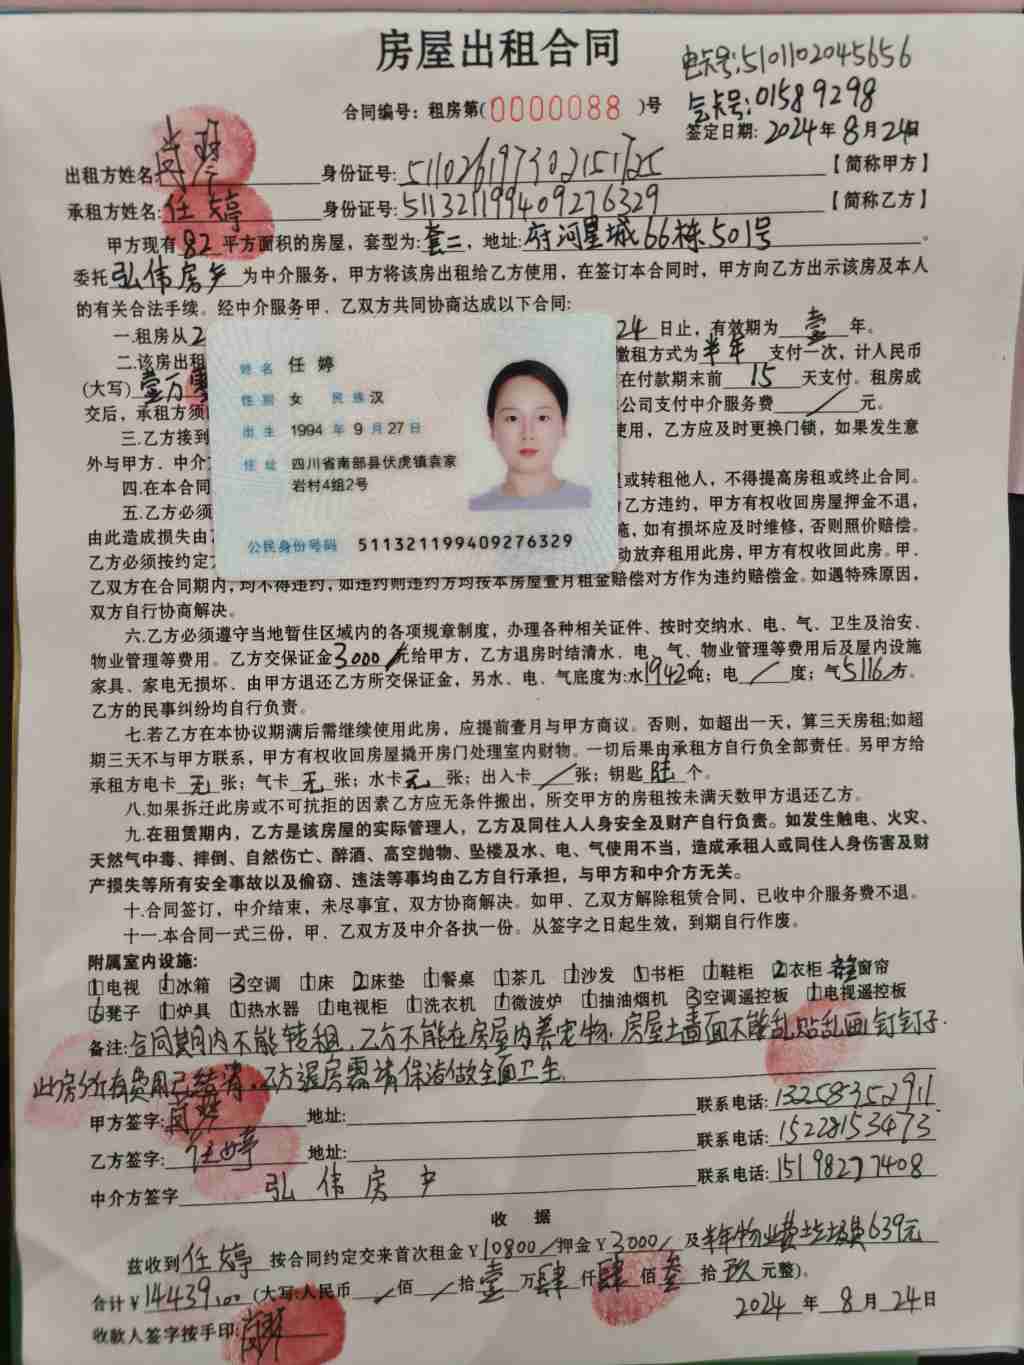 房屋出租合同
电卡号:5101102045656
合同编号：租房第(0000088)号
气卡号:01589298
签定日期: 2024年8月24日
出租方姓名: 身份证号: 【简称甲方】
承租方姓名: 任婷 身份证号: 511321199409276329 【简称乙方】
甲方现有82平方面积的房屋，套型为:套二，地址:府河星城66栋501号。
委托弘伟房产为中介服务，甲方将该房出租给乙方使用，在签订本合同时，甲方向乙方出示该房及本人
的有关合法手续。经中介服务甲、乙双方共同协商达成以下合同:
一.租房从2 24日止，有效期为壹年。
二.该房出租 缴租方式为半年支付一次，计人民币
(大写)壹万零 在付款期末前15天支付。租房成
交后，承租方须 公司支付中介服务费/元。
三.乙方接到 使用，乙方应及时更换门锁，如果发生意
外与甲方、中介
四.在本合同 或转租他人，不得提高房租或终止合同。
五.乙方必须 乙方违约，甲方有权收回房屋押金不退，
由此造成损失由 施，如有损坏应及时维修，否则照价赔偿。
乙方必须按约定 动放弃租用此房，甲方有权收回此房。甲、
姓名 任婷
性别 女 民族 汉
出生 1994年9月27日
住址 四川省南部县伏虎镇袁家
岩村4组2号
公民身份号码 511321199409276329
乙双方在合同期内，均不得违约，如违约则违约方均按本房屋壹月租金赔偿对方作为违约赔偿金。如遇特殊原因，
双方自行协商解决。
六.乙方必须遵守当地暂住区域内的各项规章制度，办理各种相关证件、按时交纳水、电、气、卫生及治安、
物业管理等费用。乙方交保证金3000元给甲方，乙方退房时结清水、电、气、物业管理等费用后及屋内设施
家具、家电无损坏、由甲方退还乙方所交保证金，另水、电、气底度为:水1942吨；电/度；气5116方。
乙方的民事纠纷均自行负责。
七.若乙方在本协议期满后需继续使用此房，应提前壹月与甲方商议。否则，如超出一天，算三天房租;如超
期三天不与甲方联系，甲方有权收回房屋撬开房门处理室内财物。一切后果由承租方自行负全部责任。另甲方给
承租方电卡无张；气卡无张；水卡无张；出入卡/张；钥匙陆个。
八.如果拆迁此房或不可抗拒的因素乙方应无条件搬出，所交甲方的房租按未满天数甲方退还乙方。
九.在租赁期内，乙方是该房屋的实际管理人，乙方及同住人人身安全及财产自行负责。如发生触电、火灾、
天然气中毒、摔倒、自然伤亡、醉酒、高空抛物、坠楼及水、电、气使用不当，造成承租人或同住人身伤害及财
产损失等所有安全事故以及偷窃、违法等事均由乙方自行承担，与甲方和中介方无关。
十.合同签订，中介结束，未尽事宜，双方协商解决。如甲、乙双方解除租赁合同，已收中介服务费不退。
十一.本合同一式三份，甲、乙双方及中介各执一份。从签字之日起生效，到期自行作废。
附属室内设施:
1电视 1冰箱 3空调 1床 2床垫 1餐桌 1茶几 1沙发 1书柜 1鞋柜 2衣柜 窗帘
6凳子 1炉具 1热水器 1电视柜 1洗衣机 1微波炉 1抽油烟机 3空调遥控板 1电视遥控板
备注:合同期内不能转租，乙方不能在房屋内养宠物.房屋土墙面不能乱贴乱画,钉钉子.
此房介所有费用已结清，乙方退房需请保洁做全面卫生.
甲方签字: 地址: 联系电话:13258352911.
乙方签字:任婷 地址: 联系电话:15228153473
中介方签字 弘伟房产 联系电话:15198277408
收 据
兹收到任婷按合同约定交来首次租金￥10800/押金￥3000/及半年物业费垃圾费639元
合计￥14439.00(大写:人民币/佰/拾壹万肆仟肆佰叁拾玖元整)。
收款人签字按手印: 2024年8月24日